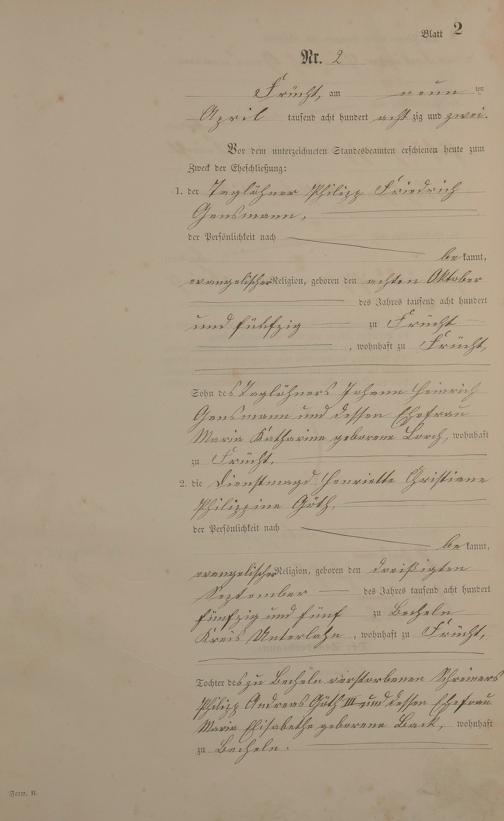 Blatt 2
Nr. 2
Frücht, am neun ten
April tausend acht hundert acht zig und zwei.
Vor dem unterzeichneten Standesbeamten erschienen heute zum
Zweck der Eheschließung:
1. der Taglöhner Philipp Friedrich
Gensmann,
der Persönlichkeit nach
be kannt,
evangelischer Religion, geboren den achten Oktober
des Jahres tausend acht hundert
und fünfzig zu Frücht
, wohnhaft zu Frücht,
Sohn des Taglöhners Johann Heinrich
Gensmann und dessen Ehefrau
Maria Katharina geborene Lorch, wohnhaft
zu Frücht.
2. die Dienstmagd Henriette Christiane
Philippine Göth,
der Persönlichkeit nach
be kannt,
evangelischer Religion, geboren den dreißigten
September des Jahres tausend acht hundert
fünfzig und fünf zu Becheln
Kreis Unterlahn, wohnhaft zu Frücht,
Tochter des zu Becheln verstorbenen Schreiners
Philipp Andreas Göth III und dessen Ehefrau
Maria Elisabethe geborene Back, wohnhaft
zu Becheln.
Form. B.